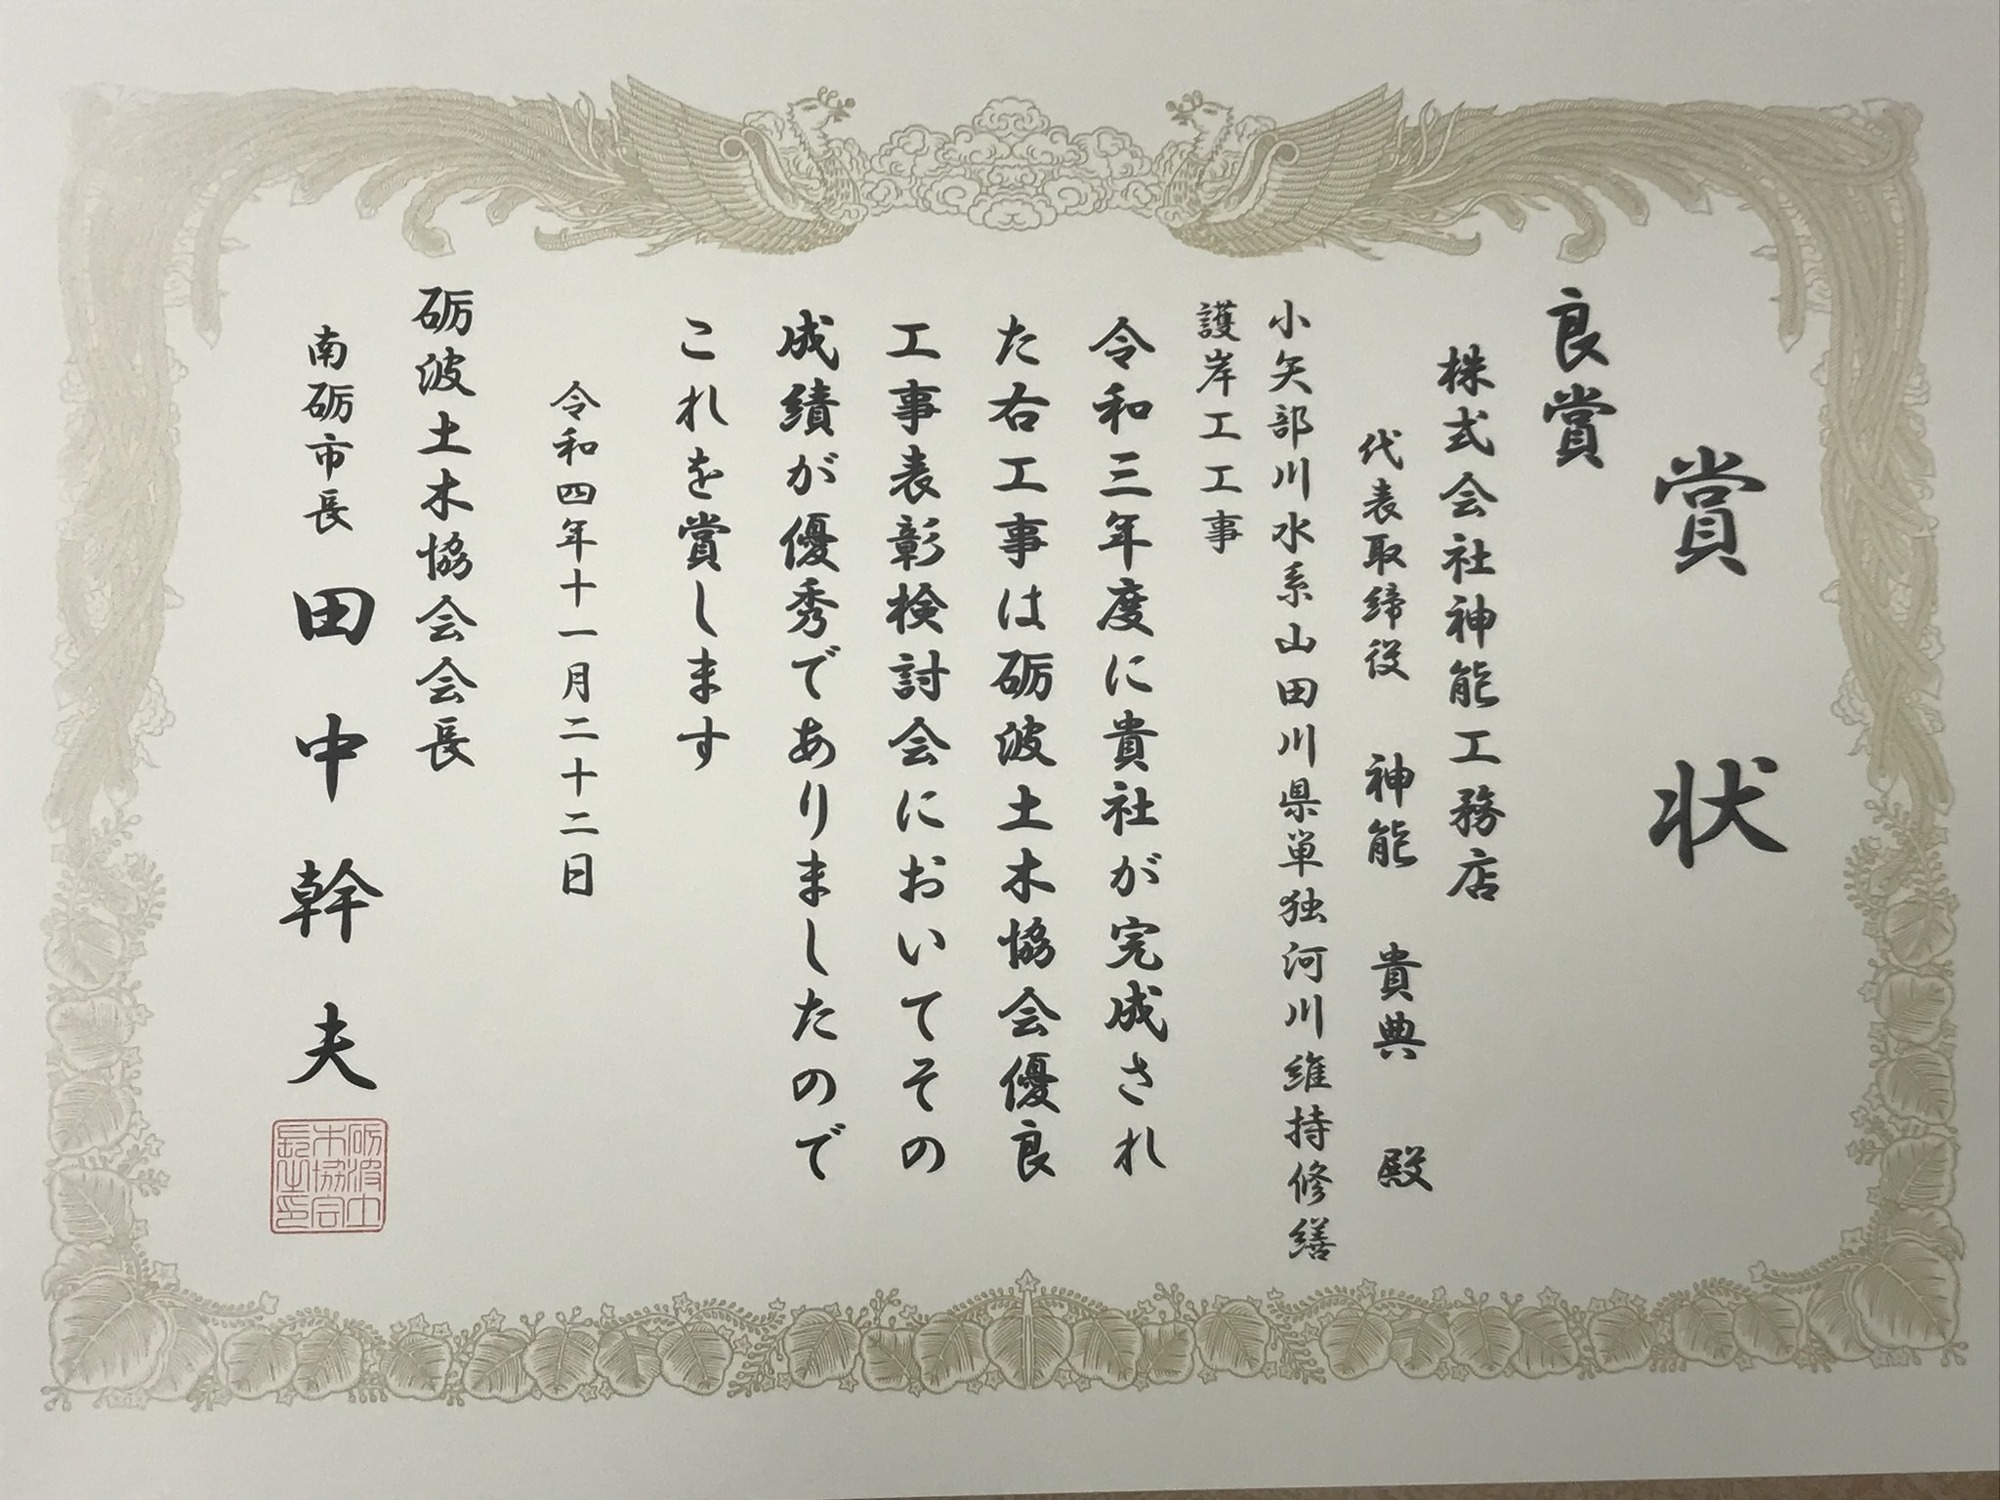 賞状
良賞
株式会社神能工務店
代表取締役 神能 貴典 殿
小矢部川水系山田川県単独河川維持修繕
護岸工工事
令和三年度に貴社が完成され
た右工事は砺波土木協会優良
工事表彰検討会においてその
成績が優秀でありましたので
これを賞します
令和四年十一月二十二日
砺波土木協会会長
南砺市長 田中幹夫
砺波土
木協会
長之印